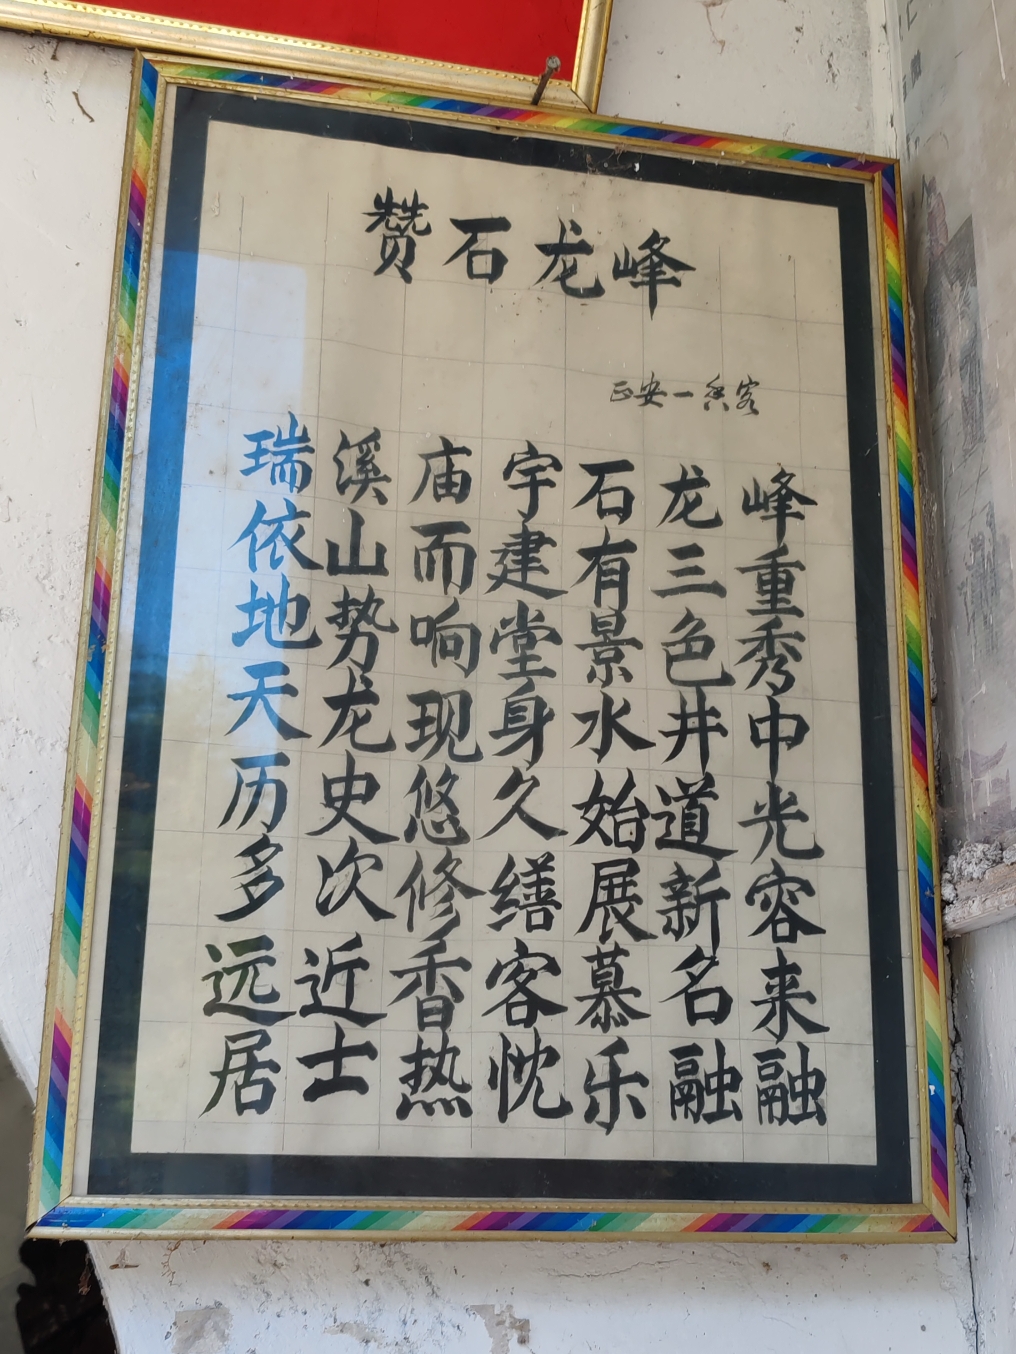 赞石龙峰
正安一香客
瑞溪庙宇石龙峰
依山而建有三重
地势响堂景色秀
天龙现身水井中
历史悠久始道光
多次修缮展新容
远近香客慕名来
居士热忱乐融融